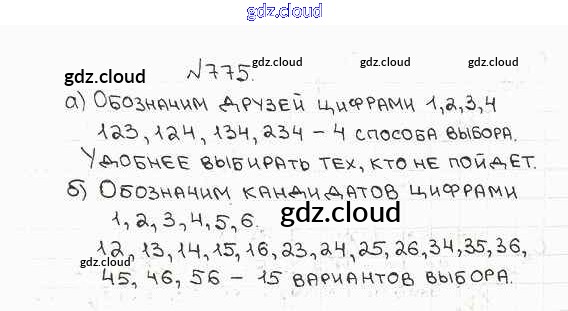 gdz.cloud
gdz.cloud gdz.cloud gdz.cloud
№775.
а) Обозначим друзей цифрами 1,2,3,4
123, 124, 134, 234 – 4 способа выбора.
Удобнее выбирать тех, кто не пойдет.
б) Обозначим кандидатов цифрами
1, 2, 3, 4, 5, 6.
gdz.cloud
12, 13, 14, 15, 16, 23, 24, 25, 26, 34, 35, 36,
gdz.cloud
45, 46, 56 – 15 вариантов выбора.
gdz.cloud